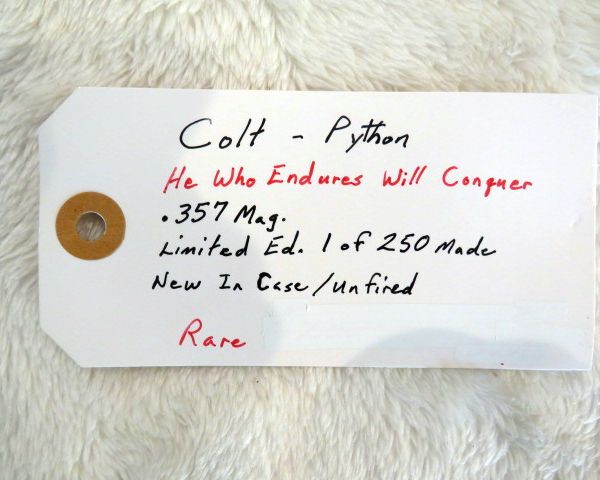 Colt - Python
He Who Endures Will Conquer
.357 Mag.
Limited Ed. 1 of 250 Made
New In Case/Unfired
Rare